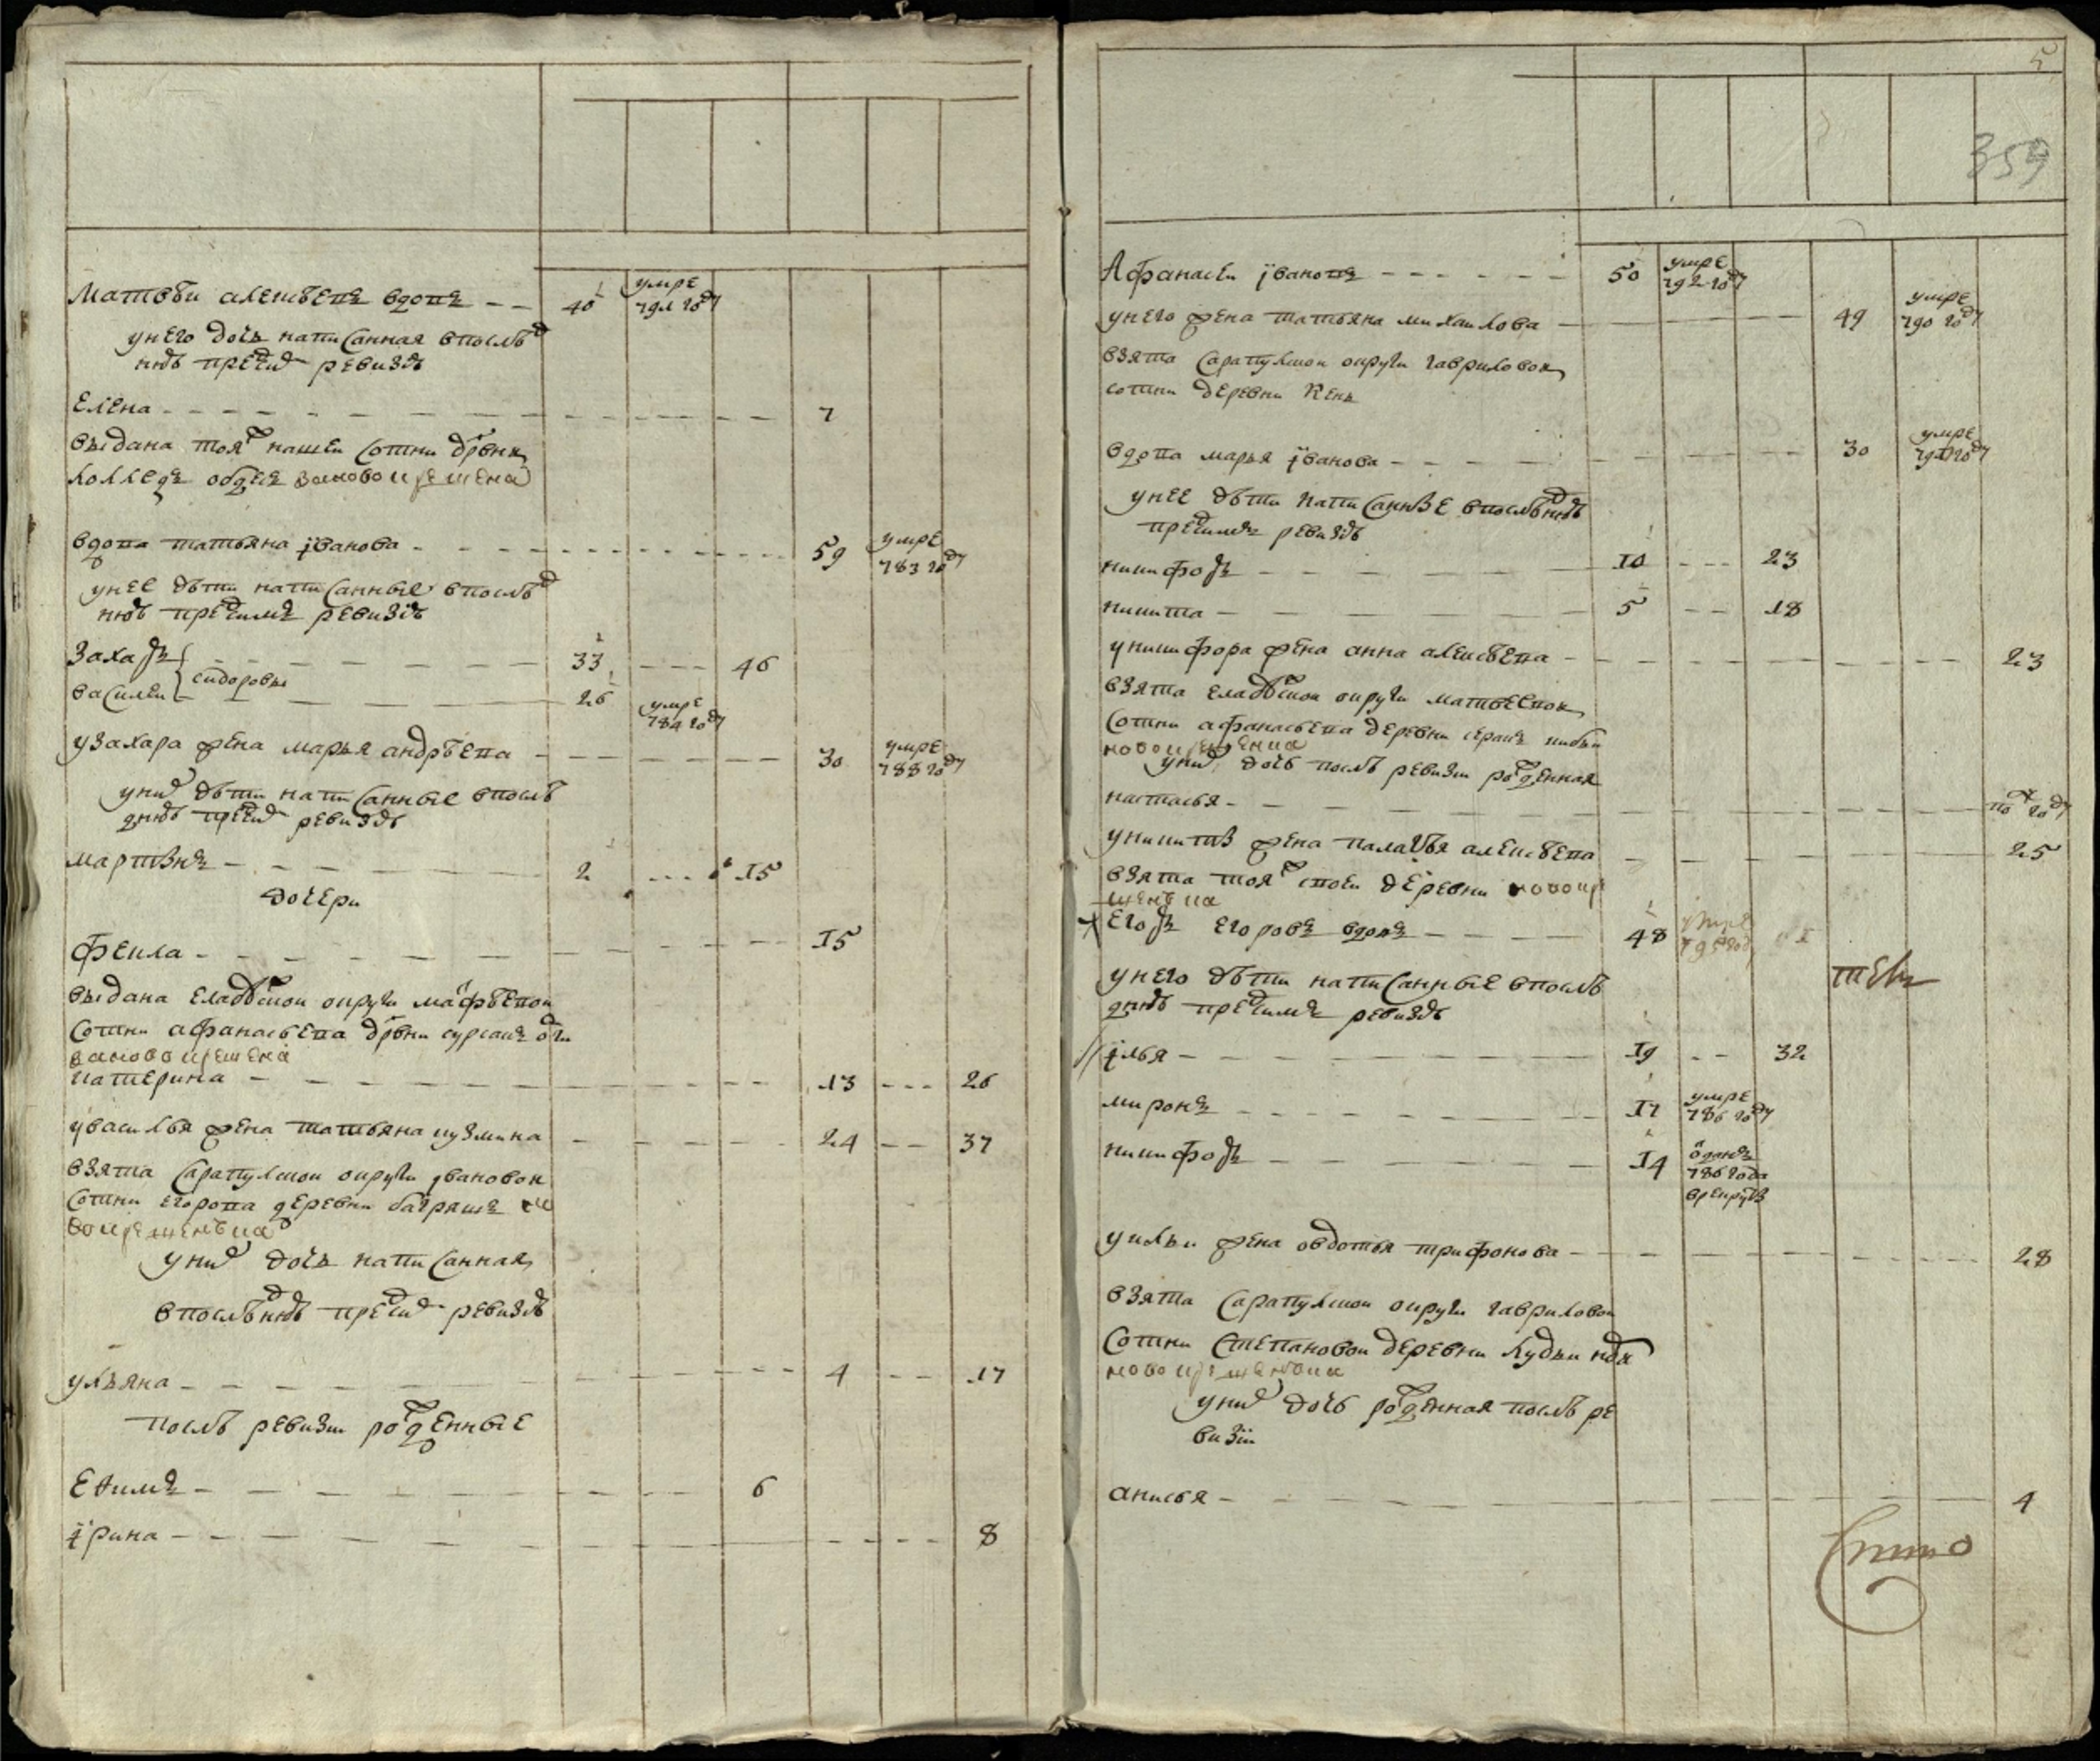 Матвѣи алеѯѣевъ вдовъ 40 умре 791 году
унего дочь написанная впослѣд
ней пред сим ревизѣ
Елена 7
выдана тояж нашеи сотни дрвни
вдова татьяна іванова 59 умре 783 году
унее дѣти написанные впослѣд
ней пред симъ ревизіѣ
Захаръ 33 46
сидоровы
василеи 26 умре 784 году
узахара жена марья андрѣева 30 умре 788 году
уних дѣти написанные впослѣ
дней пред сим ревизѣ
мартынъ 2 15
дочери
фекла 15
выдана Глазовскои округи матфѣевои
сотни афанасьева дрвни
зановокрещена
катерина 13 26
увасилья жена татьяна кузмина 24 37
взята сарапулскои округи івановои
сотни егорова деревни баграшъ но
вокрещенъка
уних дочь написанная
впослѣдней пред сим ревизѣ
ульяна 4 17
послѣ ревизии рожденные
Ефимъ 6
ірина 8
5
359
Афанасеи івановъ 50 умре 792 году
унего жена татьяна михаилова 49 умре 790 году
взята сарапулскои округи гавриловои
сотни деревни
вдова марья іванова 30 умре
унее дѣти написанные впослѣдней
пред симъ ревизѣ
никифоръ 10 23
никита 5 18
уникифора жена анна алеѯѣева 23
взята глазовскои округи матвеевои
сотни афанасьева деревни
новокрещенка
уних дочь послѣ ревизии рожденная
настасья по году
уникиты жена палагѣя алеѯѣева 25
взята тояж своеи деревни новокре
щенька
Егоръ егоровъ вдовъ 48 умре 795 год
унего дѣти написанные впослѣ
дней пред симъ ревизѣ
ілья 19 32
миронъ 17 умре 786 году
никифоръ 14 оданъ 786 года врекруты
уильи жена овдотья трифонова 28
взята сарапулскои округи гавриловои
сотни степановои деревни
новокрещенъка
уних дочь рожденная послѣ ре
визіи
анисья 4